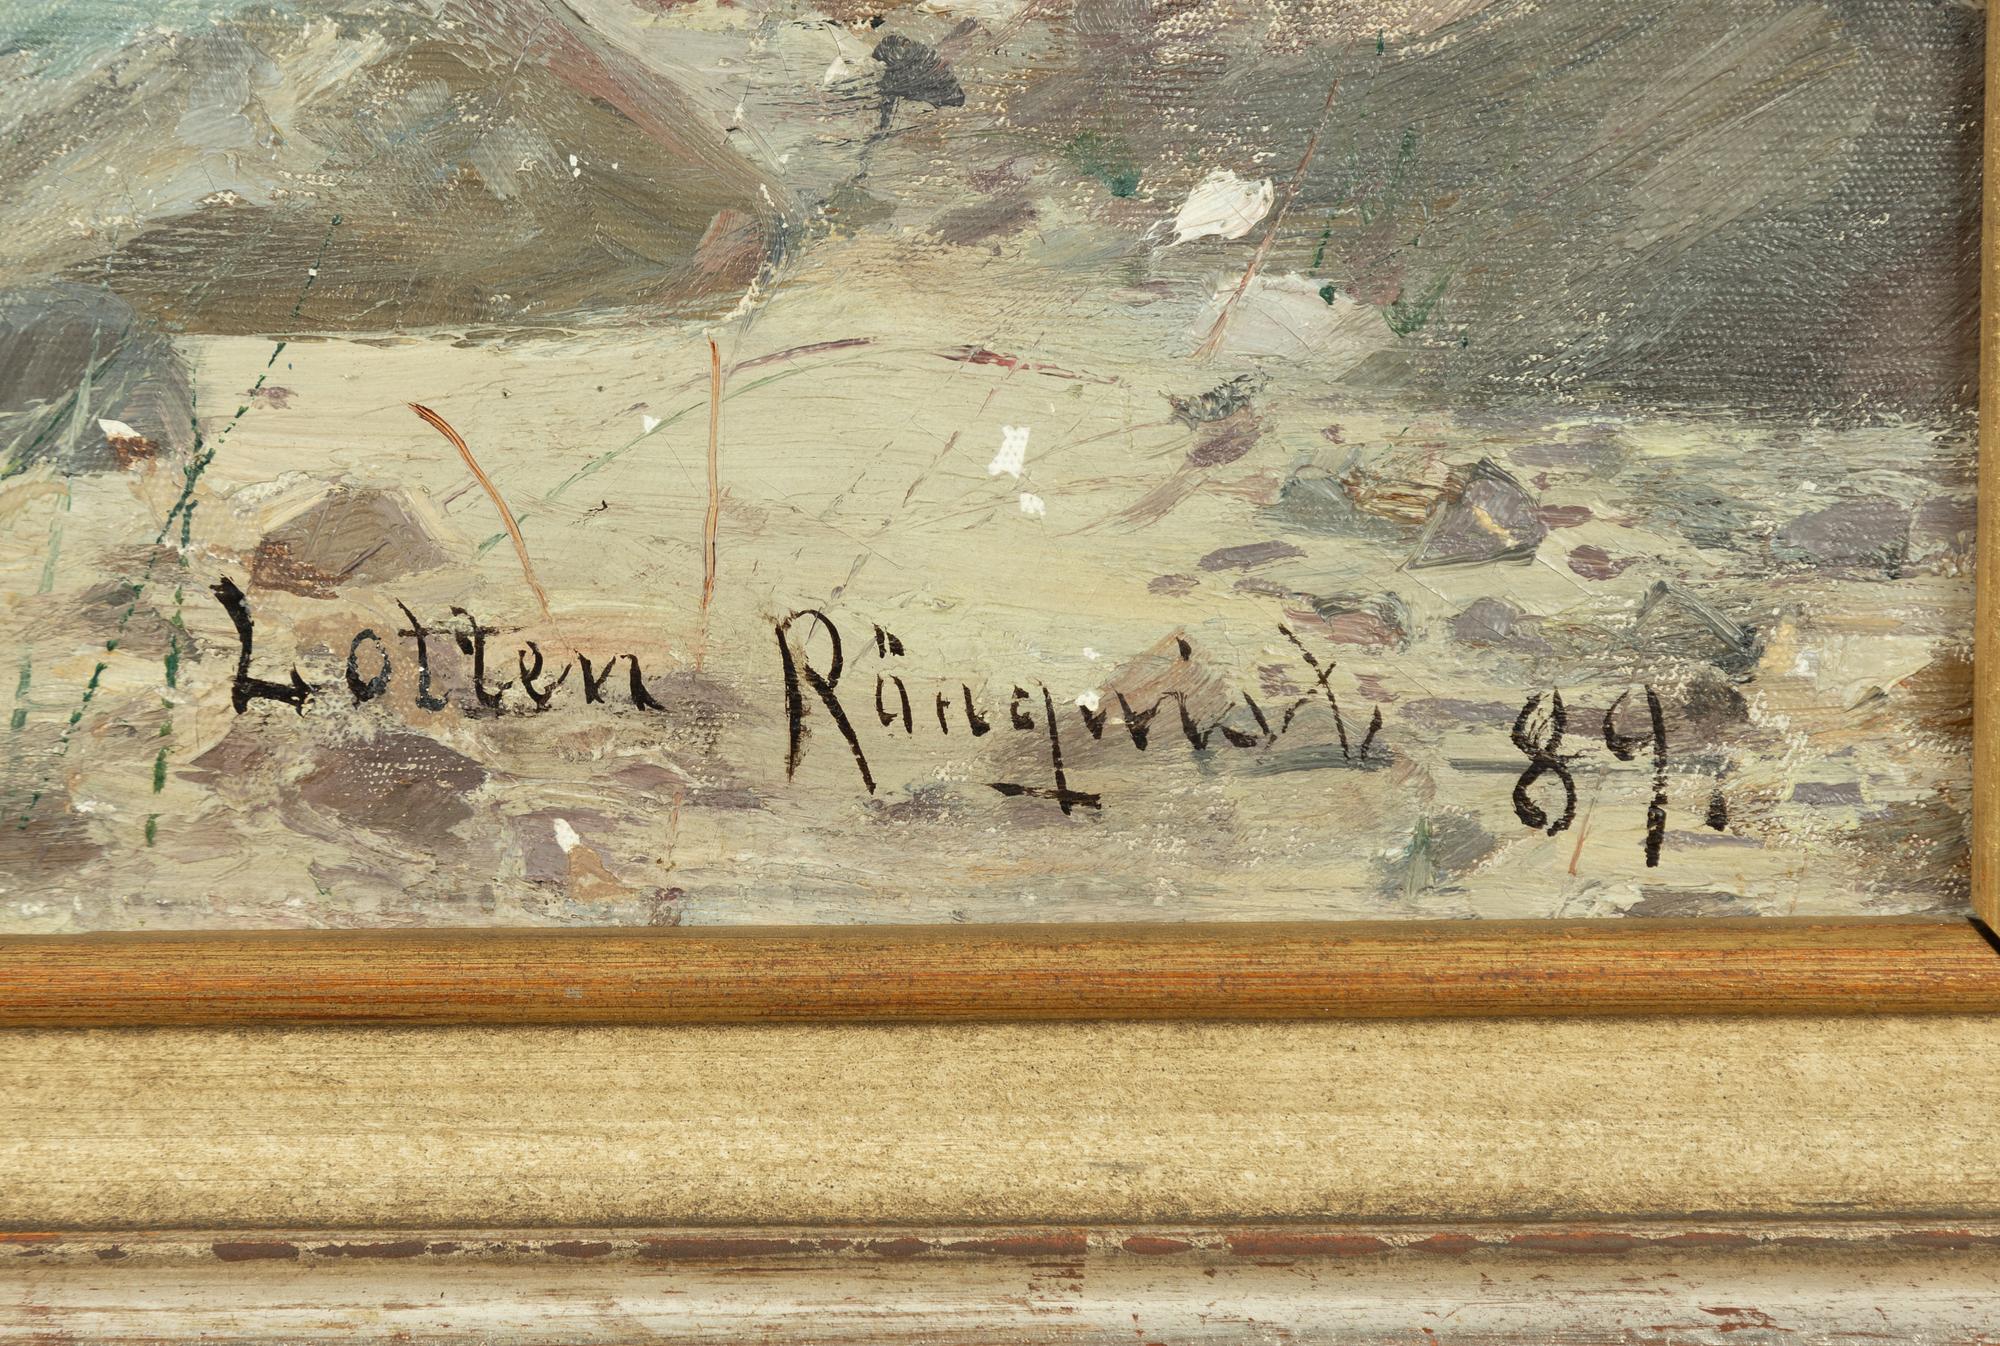 Lotten Rönquist 89.